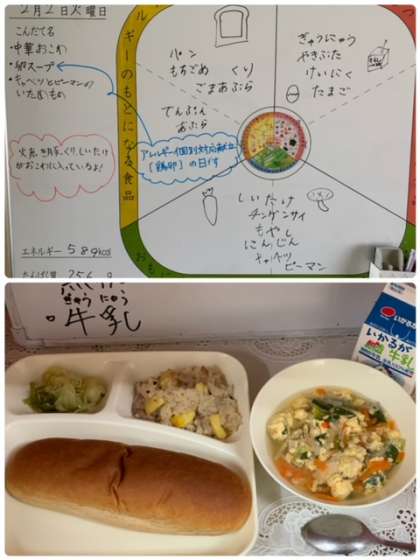 2月2日火曜日
こんだてる
・中華おこわ
・卵スープ
・キャベツとピーマンの
いためもの
焼豚、くり、しいたけ
がおこわに入っているよ!
エネルギー 589kcal
ギーのもとになる食品
パン
もちごめ くり
ごまあぶら
でんぷん
あぶら
ぎゅうにゅう
やきぶた
けいにく
たまご
アレルギー個別対応献立
「鶏卵」の日です
しいたけ
チンゲンサイ
もやし
にんじん
キャベツ
ピーマン
ぎゅうにゅう
牛乳
いかるが
牛乳